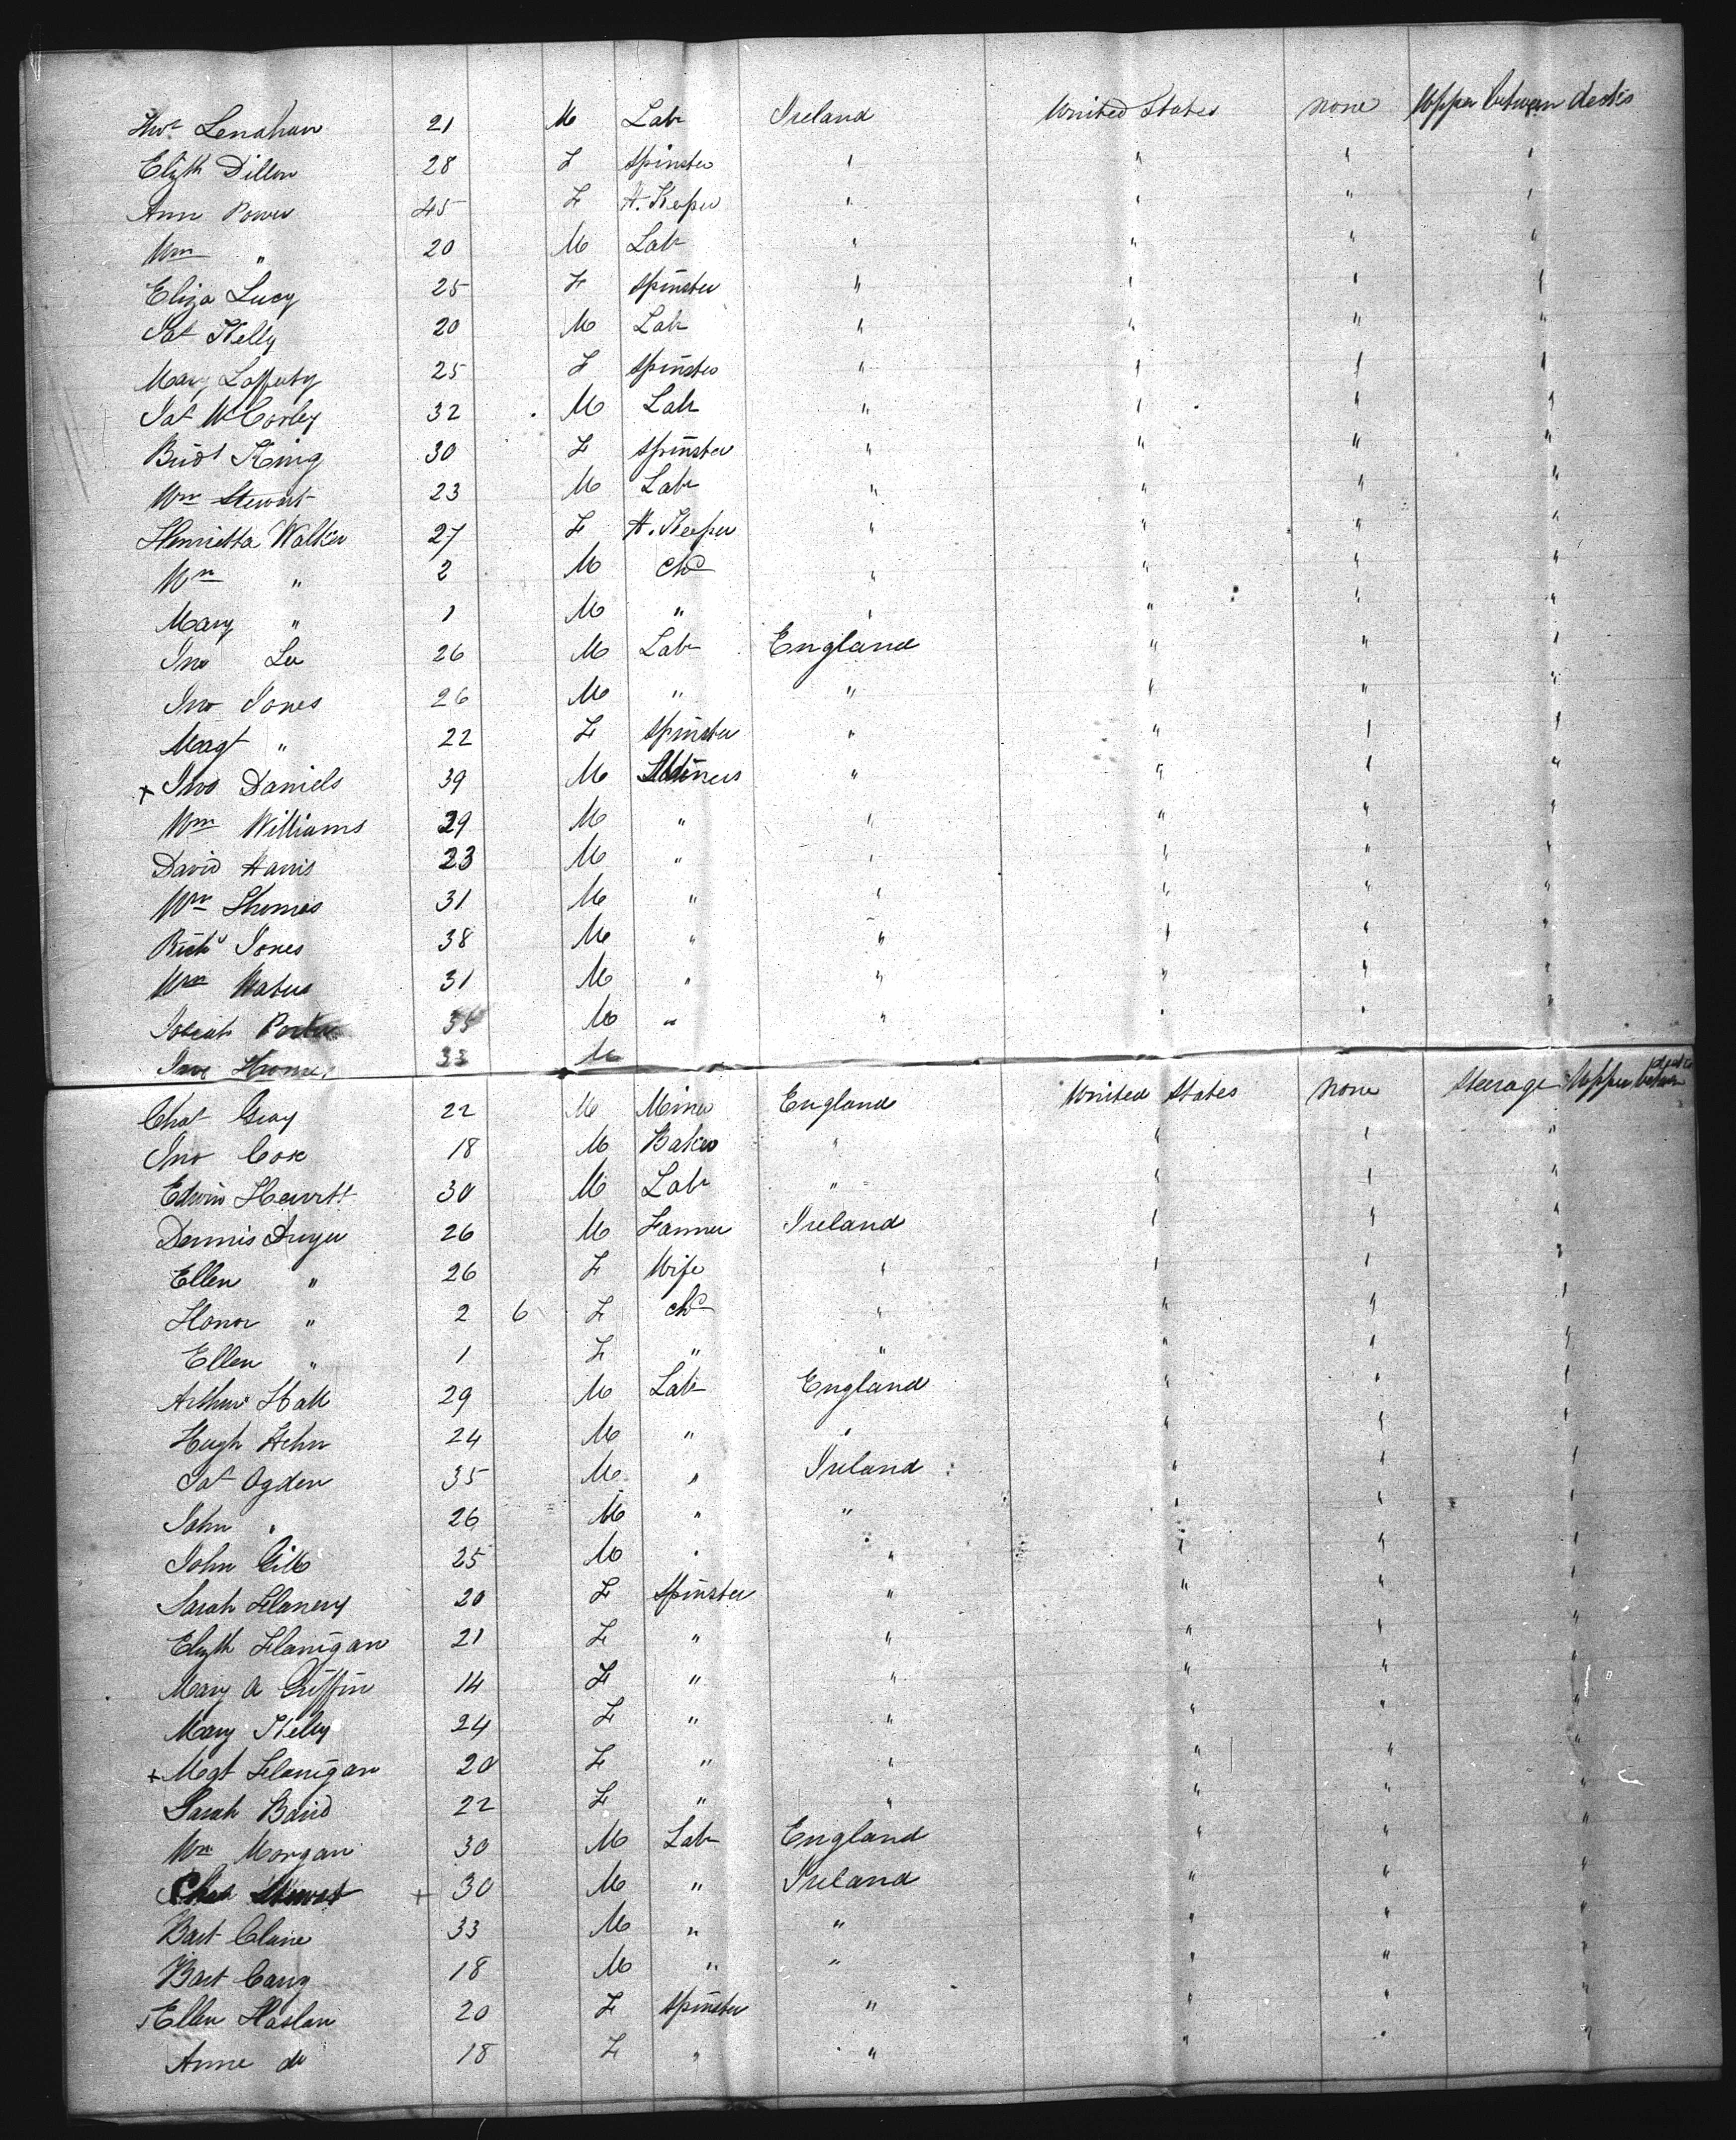 Thos Lenahan 21 M Lab Ireland United States none Upper between decks
Elizth Dillon 28 F Spinster " " " "
Ann Power 45 F H. Keeper " " " "
Wm " 20 M Lab " " " "
Eliza Lucy 25 F Spinster " " " "
Pat Kelly 20 M Lab " " " "
Mary Lafferty 25 F Spinster " " " "
Pat McCorley 32 M Lab " " " "
Bridt King 30 F Spinster " " " "
Wm Stewart 23 M Lab " " " "
Henrietta Walker 27 F H. Keeper " " " "
Wm " 2 M chd " " " "
Mary " 1 M " " " " "
Jno Lee 26 M Lab England " " "
Jno Jones 26 M " " " " "
Margt " 22 F Spinster " " " "
+ Jno Daniels 39 M Miners " " " "
Wm Williams 29 M " " " " "
David Harris 23 M " " " " "
Wm Thomas 31 M " " " " "
Richd Jones 38 M " " " " "
Wm Waters 31 M " " " " "
Josiah 35 M " " " " "
33 M
Chas Gray 22 M Miner England United States none Steerage Upper between decks
Jno Cox 18 M Baker " " " "
Edwin Hewitt 30 M Lab " " " "
Dennis Dwyer 26 M Farmer Ireland " " "
Ellen " 26 F Wife " " " "
Honor " 2 6 F chd " " " "
Ellen " 1 F " " " " "
Arthur Hall 29 M Lab England " " "
Hugh 24 M " " " " "
Pat Ogden 35 M " Ireland " " "
John " 26 M " " " " "
John Gill 25 M " " " " "
Sarah Flanery 20 F Spinster " " " "
Elizth Flanigan 21 F " " " " "
Mary A Griffin 14 F " " " " "
Mary Kelly 24 F " " " " "
+ Mgt Flanigan 20 F " " " " "
Sarah Baird 22 F " " " " "
Wm Morgan 30 M Lab England " " "
Stewart + 30 M " Ireland " " "
Bart Clane 33 M " " " " "
Bart Cary 18 M " " " " "
Ellen Haslan 20 F Spinster " " " "
Anne do 18 F " " " " "